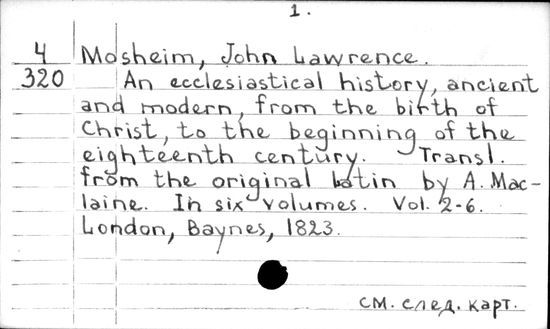 1.
4 Mosheim, John Lawrence.
320 An ecclesiastical history, ancient
and modern, from the birth of
Christ, to the beginning of the
eighteenth century. Transl.
from the original latin by A. Mac-
laine. In six volumes. Vol. 2-6.
London, Baynes, 1823.
см. след. карт.